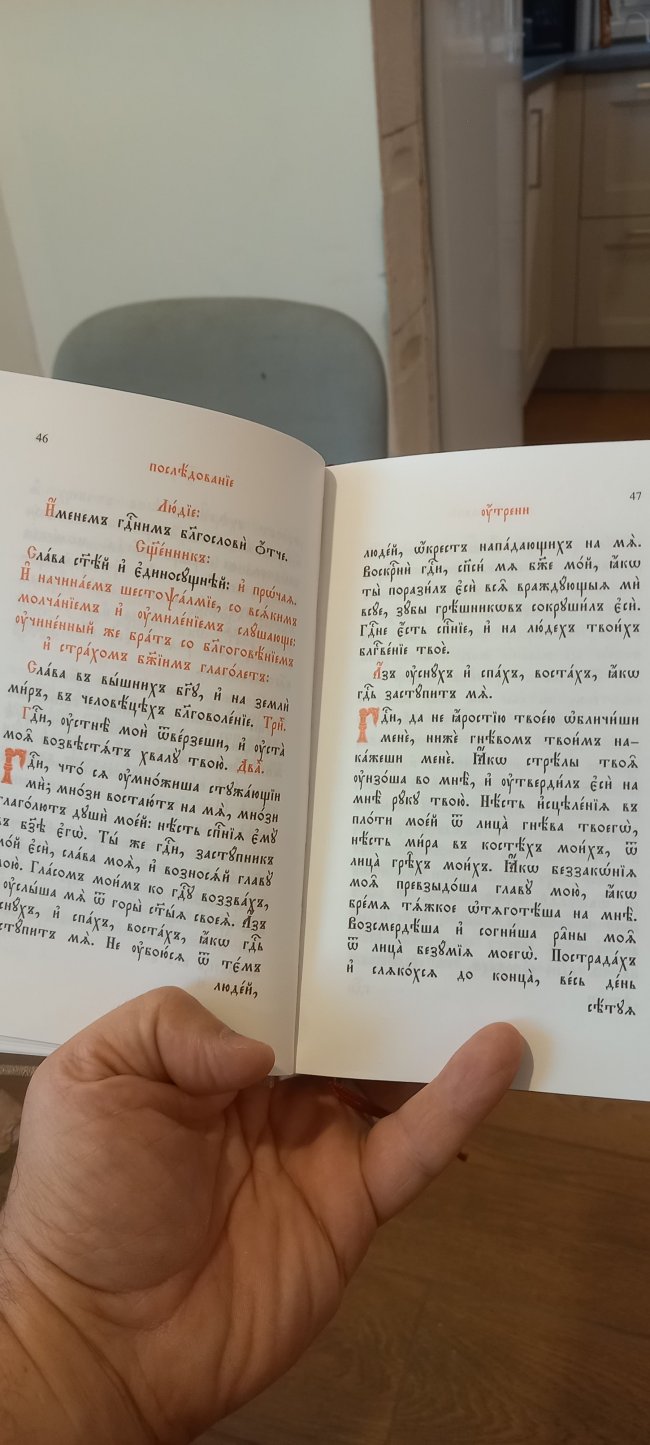 46
послѣ́дованїе
Лю́дїе:
И҆́менемъ гдⷭ҇нимъ бл҃гословѝ ѻ҆́тче.
Сщ҃е́нникъ:
Сла́ва ст҃ѣ́й и҆ є҆диносꙋ́щнѣй: и҆ прѡ́чаѧ.
И҆ начина́емъ шестоѱа́лмїе, со всѧ́кимъ
молча́нїемъ и҆ ᲂу҆миле́нїемъ слꙋ́шающе:
ᲂу҆чине́нный же бра́тъ со бл҃гоговѣ́нїемъ
и҆ стра́хомъ бж҃їимъ глаго́летъ:
Сла́ва въ вы́шнихъ бг҃ꙋ, и҆ на землѝ
ми́ръ, въ человѣ́цѣхъ бл҃говоле́нїе. Три́ⷤ.
Гдⷭ҇и, ᲂу҆стнѣ̀ моѝ ѿве́рзеши, и҆ ᲂу҆ста̀
моѧ̑ возвѣстѧ́тъ хвалꙋ̀ твою̀. Два́ⷤ.
Гдⷭ҇и, что́ сѧ ᲂу҆мно́жиша стꙋжа́ющїи
мѝ; мно́зи востаю́тъ на мѧ̀, мно́зи
глаго́лютъ дꙋшѝ мое́й: нѣ́сть сп҃нїѧ є҆мꙋ̀
въ бз҃ѣ є҆гѡ̀. Ты́ же гдⷭ҇и, застꙋ́пникъ
мо́й є҆сѝ, сла́ва моѧ̀, и҆ возносѧ́й главꙋ̀
мою̀. Гла́сомъ мои́мъ ко гдⷭ҇ꙋ воззва́хъ,
ᲂу҆слы́ша мѧ̀ ѿ горы̀ ст҃ы́ѧ своеѧ̀. А҆́зъ
ᲂу҆снꙋ́хъ, и҆ спа́хъ, воста́хъ, ꙗ҆́кѡ гдⷭ҇ь
застꙋ́питъ мѧ̀. Не ᲂу҆бою́сѧ ѿ те́мъ
люде́й,
47
ᲂу҆́трени
люде́й, ѡ҆́крестъ напа́дающихъ на мѧ̀.
Воскрⷭ҇нѝ гдⷭ҇и, сп҃сѝ мѧ бж҃е мо́й, ꙗ҆́кѡ
ты̀ порази́лъ є҆сѝ всѧ̑ враждꙋ́ющыѧ мѝ
всꙋ́е, зꙋ́бы грѣ́шникѡвъ сокрꙋши́лъ є҆сѝ.
Гдⷭ҇не є҆́сть сп҃нїе, и҆ на лю́дехъ твои́хъ
блгⷭ҇ве́нїе твоѐ.
А҆́зъ ᲂу҆снꙋ́хъ и҆ спа́хъ, воста́хъ, ꙗ҆́кѡ
гдⷭ҇ь застꙋ́питъ мѧ̀.
Гдⷭ҇и, да не ꙗ҆́ростїю твое́ю ѡ҆бличи́ши
менѐ, нижѐ гнѣ́вомъ твои́мъ на-
ка́жеши менѐ. Ꙗ҆́кѡ стрѣ́лы твоѧ̑
ᲂу҆нзо́ша во мнѣ̀, и҆ ᲂу҆тверди́лъ є҆сѝ на
мнѣ̀ рꙋ́кꙋ твою̀. Нѣ́сть и҆сцѣле́нїѧ въ
пло́ти мое́й ѿ лица̀ гнѣ́ва твоегѡ̀,
нѣ́сть ми́ра въ косте́хъ мои́хъ, ѿ
лица̀ грѣ̑хъ мои́хъ. Ꙗ҆́кѡ беззакѡ́нїѧ
моѧ̑ превзыдо́ша главꙋ̀ мою̀, ꙗ҆́кѡ
бре́мѧ тѧ́жкое ѡ҆тѧготѣ́ша на мнѣ̀.
Возсмердѣ́ша и҆ согни́ша ра̑ны моѧ̑
ѿ лица̀ безꙋ́мїѧ моегѡ̀. Пострада́хъ
и҆ слѧко́хсѧ до конца̀, ве́сь де́нь
сѣ́тꙋѧ